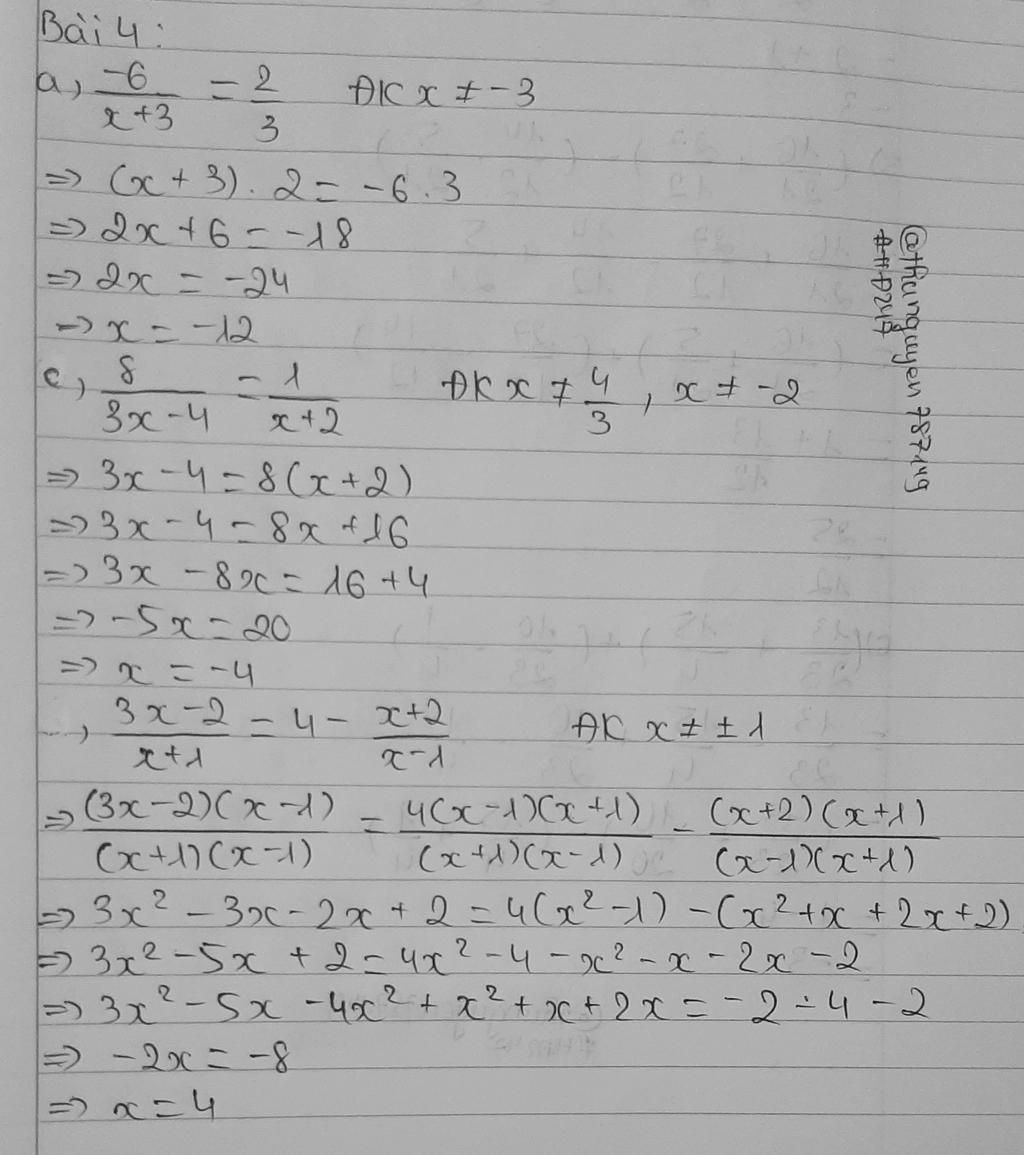 Bài 4:
a, -6/(x+3) = 2/3 ĐK x ≠ -3
=> (x + 3) . 2 = -6 . 3
=> 2x + 6 = -18
=> 2x = -24
=> x = -12
c, 8/(3x-4) = 1/(x+2) ĐK x ≠ 4/3, x ≠ -2
=> 3x - 4 = 8(x+2)
=> 3x - 4 = 8x + 16
=> 3x - 8x = 16 + 4
=> -5x = 20
=> x = -4
, (3x-2)/(x+1) = 4 - (x+2)/(x-1) ĐK x ≠ ±1
=> (3x-2)(x-1)/(x+1)(x-1) = 4(x-1)(x+1)/(x+1)(x-1) - (x+2)(x+1)/(x-1)(x+1)
=> 3x² - 3x - 2x + 2 = 4(x² - 1) - (x² + x + 2x + 2)
=> 3x² - 5x + 2 = 4x² - 4 - x² - x - 2x - 2
=> 3x² - 5x - 4x² + x² + x + 2x = -2 - 4 - 2
=> -2x = -8
=> x = 4
@thunguyen78749